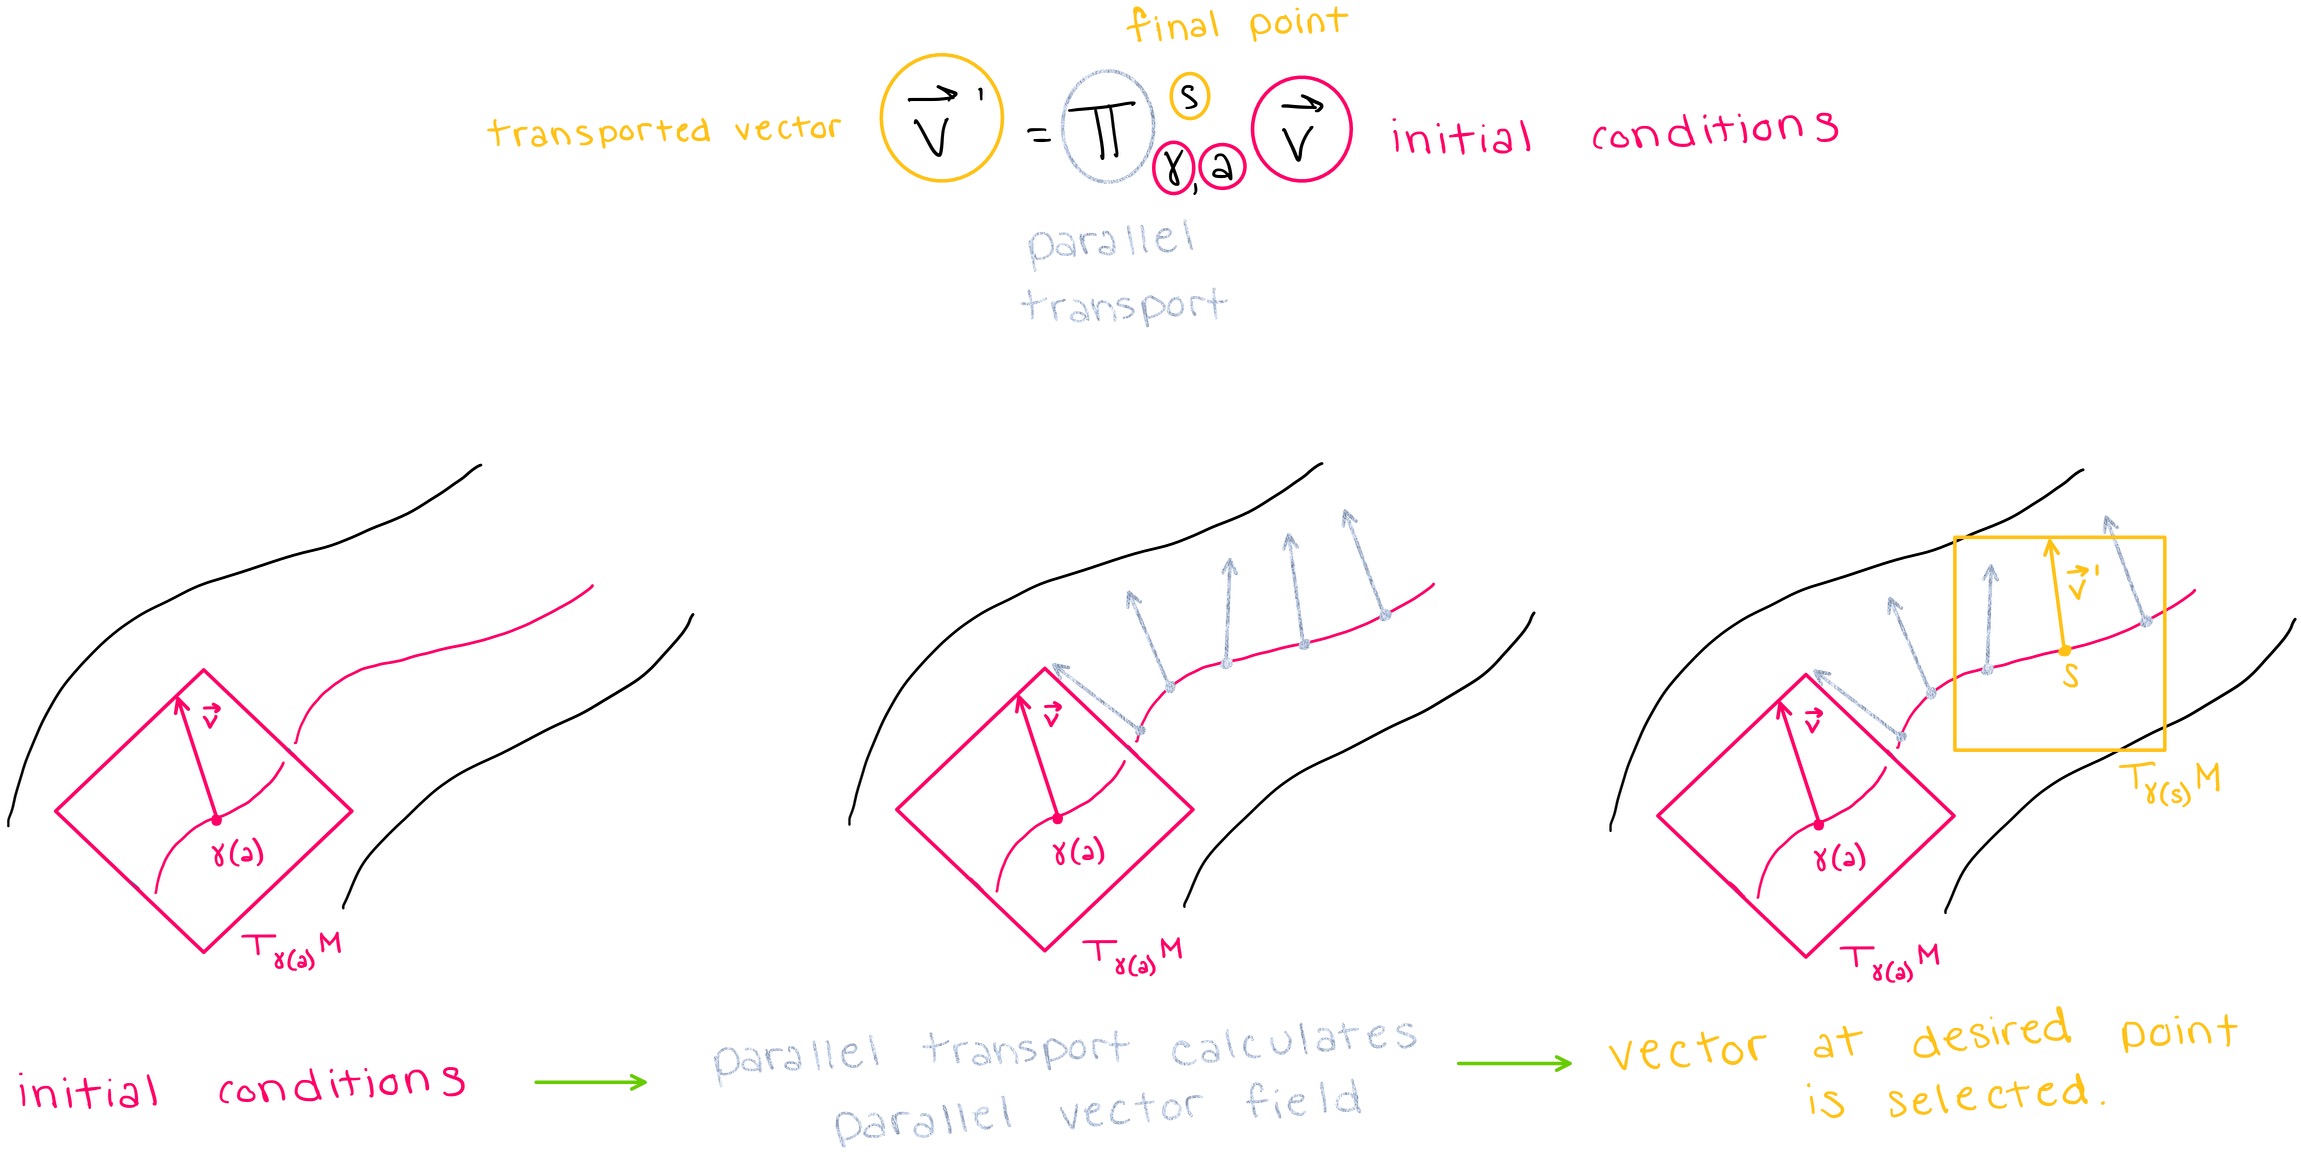 final point
transported vector v⃗' = Π^s_γ,a v⃗ initial conditions
parallel
transport
v⃗
γ(a)
T_γ(a) M
v⃗
γ(a)
T_γ(a) M
v⃗'
s
T_γ(s) M
v⃗
γ(a)
T_γ(a) M
initial conditions
parallel transport calculates
parallel vector field
vector at desired point
is selected.